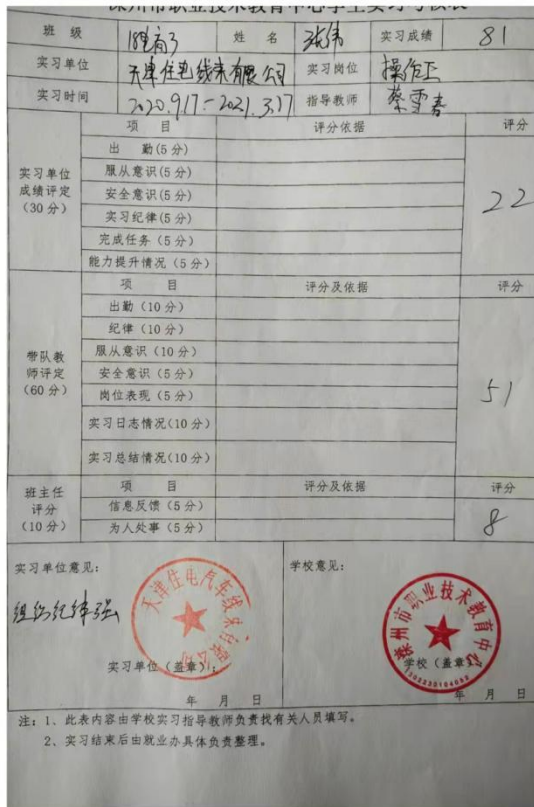 滦州市职业技术教育中心学生实习考核表
班 级 姓 名 张伟 实习成绩 81
实习单位 天津住电线束有限公司 实习岗位 操作工
实习时间 2020.9.17-2021.3.17 指导教师 蔡雪春
项 目 评分依据 评分
实习单位成绩评定（30分） 22
出 勤(5分)
服从意识(5分)
安全意识(5分)
实习纪律(5分)
完成任务（5分）
能力提升情况（5分）
项 目 评分及依据 评分
带队教师评定（60分） 51
出勤（10分）
纪律（10分）
服从意识（10分）
安全意识（5分）
岗位表现（5分）
实习日志情况(10分)
实习总结情况(10分)
班主任评分（10分） 8
项 目 评分及依据 评分
信息反馈（5分）
为人处事（5分）
实习单位意见： 学校意见：
组织纪律强
天津住电汽车线束有限公司
滦州市职业技术教育中心
实习单位（盖章）： 学校（盖章）
年 月 日 年 月 日
注：1、此表内容由学校实习指导教师负责找有关人员填写。
2、实习结束后由就业办具体负责整理。